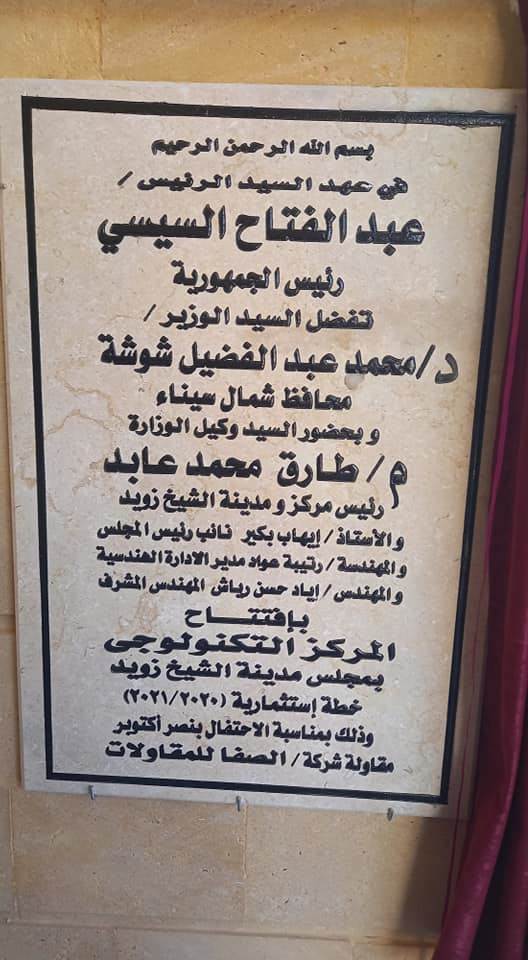 بسم الله الرحمن الرحيم
في عهد السيد الرئيس /
عبد الفتاح السيسي
رئيس الجمهورية
تفضل السيد الوزير /
د/محمد عبد الفضيل شوشة
محافظ شمال سيناء
و بحضور السيد وكيل الوزارة
م/ طارق محمد عابد
رئيس مركز و مدينة الشيخ زويد
و الأستاذ / إيهاب بكير نائب رئيس المجلس
و المهندسة / رتيبة عواد مدير الادارة الهندسية
و المهندس / إياد حسن رياش المهندس المشرف
بإفتتـــــاح
المركز التكنولوجى
بمجلس مدينة الشيخ زويد
خطة إستثمارية (٢٠٢١/٢٠٢٠)
وذلك بمناسبة الاحتفال بنصر أكتوبر
مقاولة شركة / الصفا للمقاولات